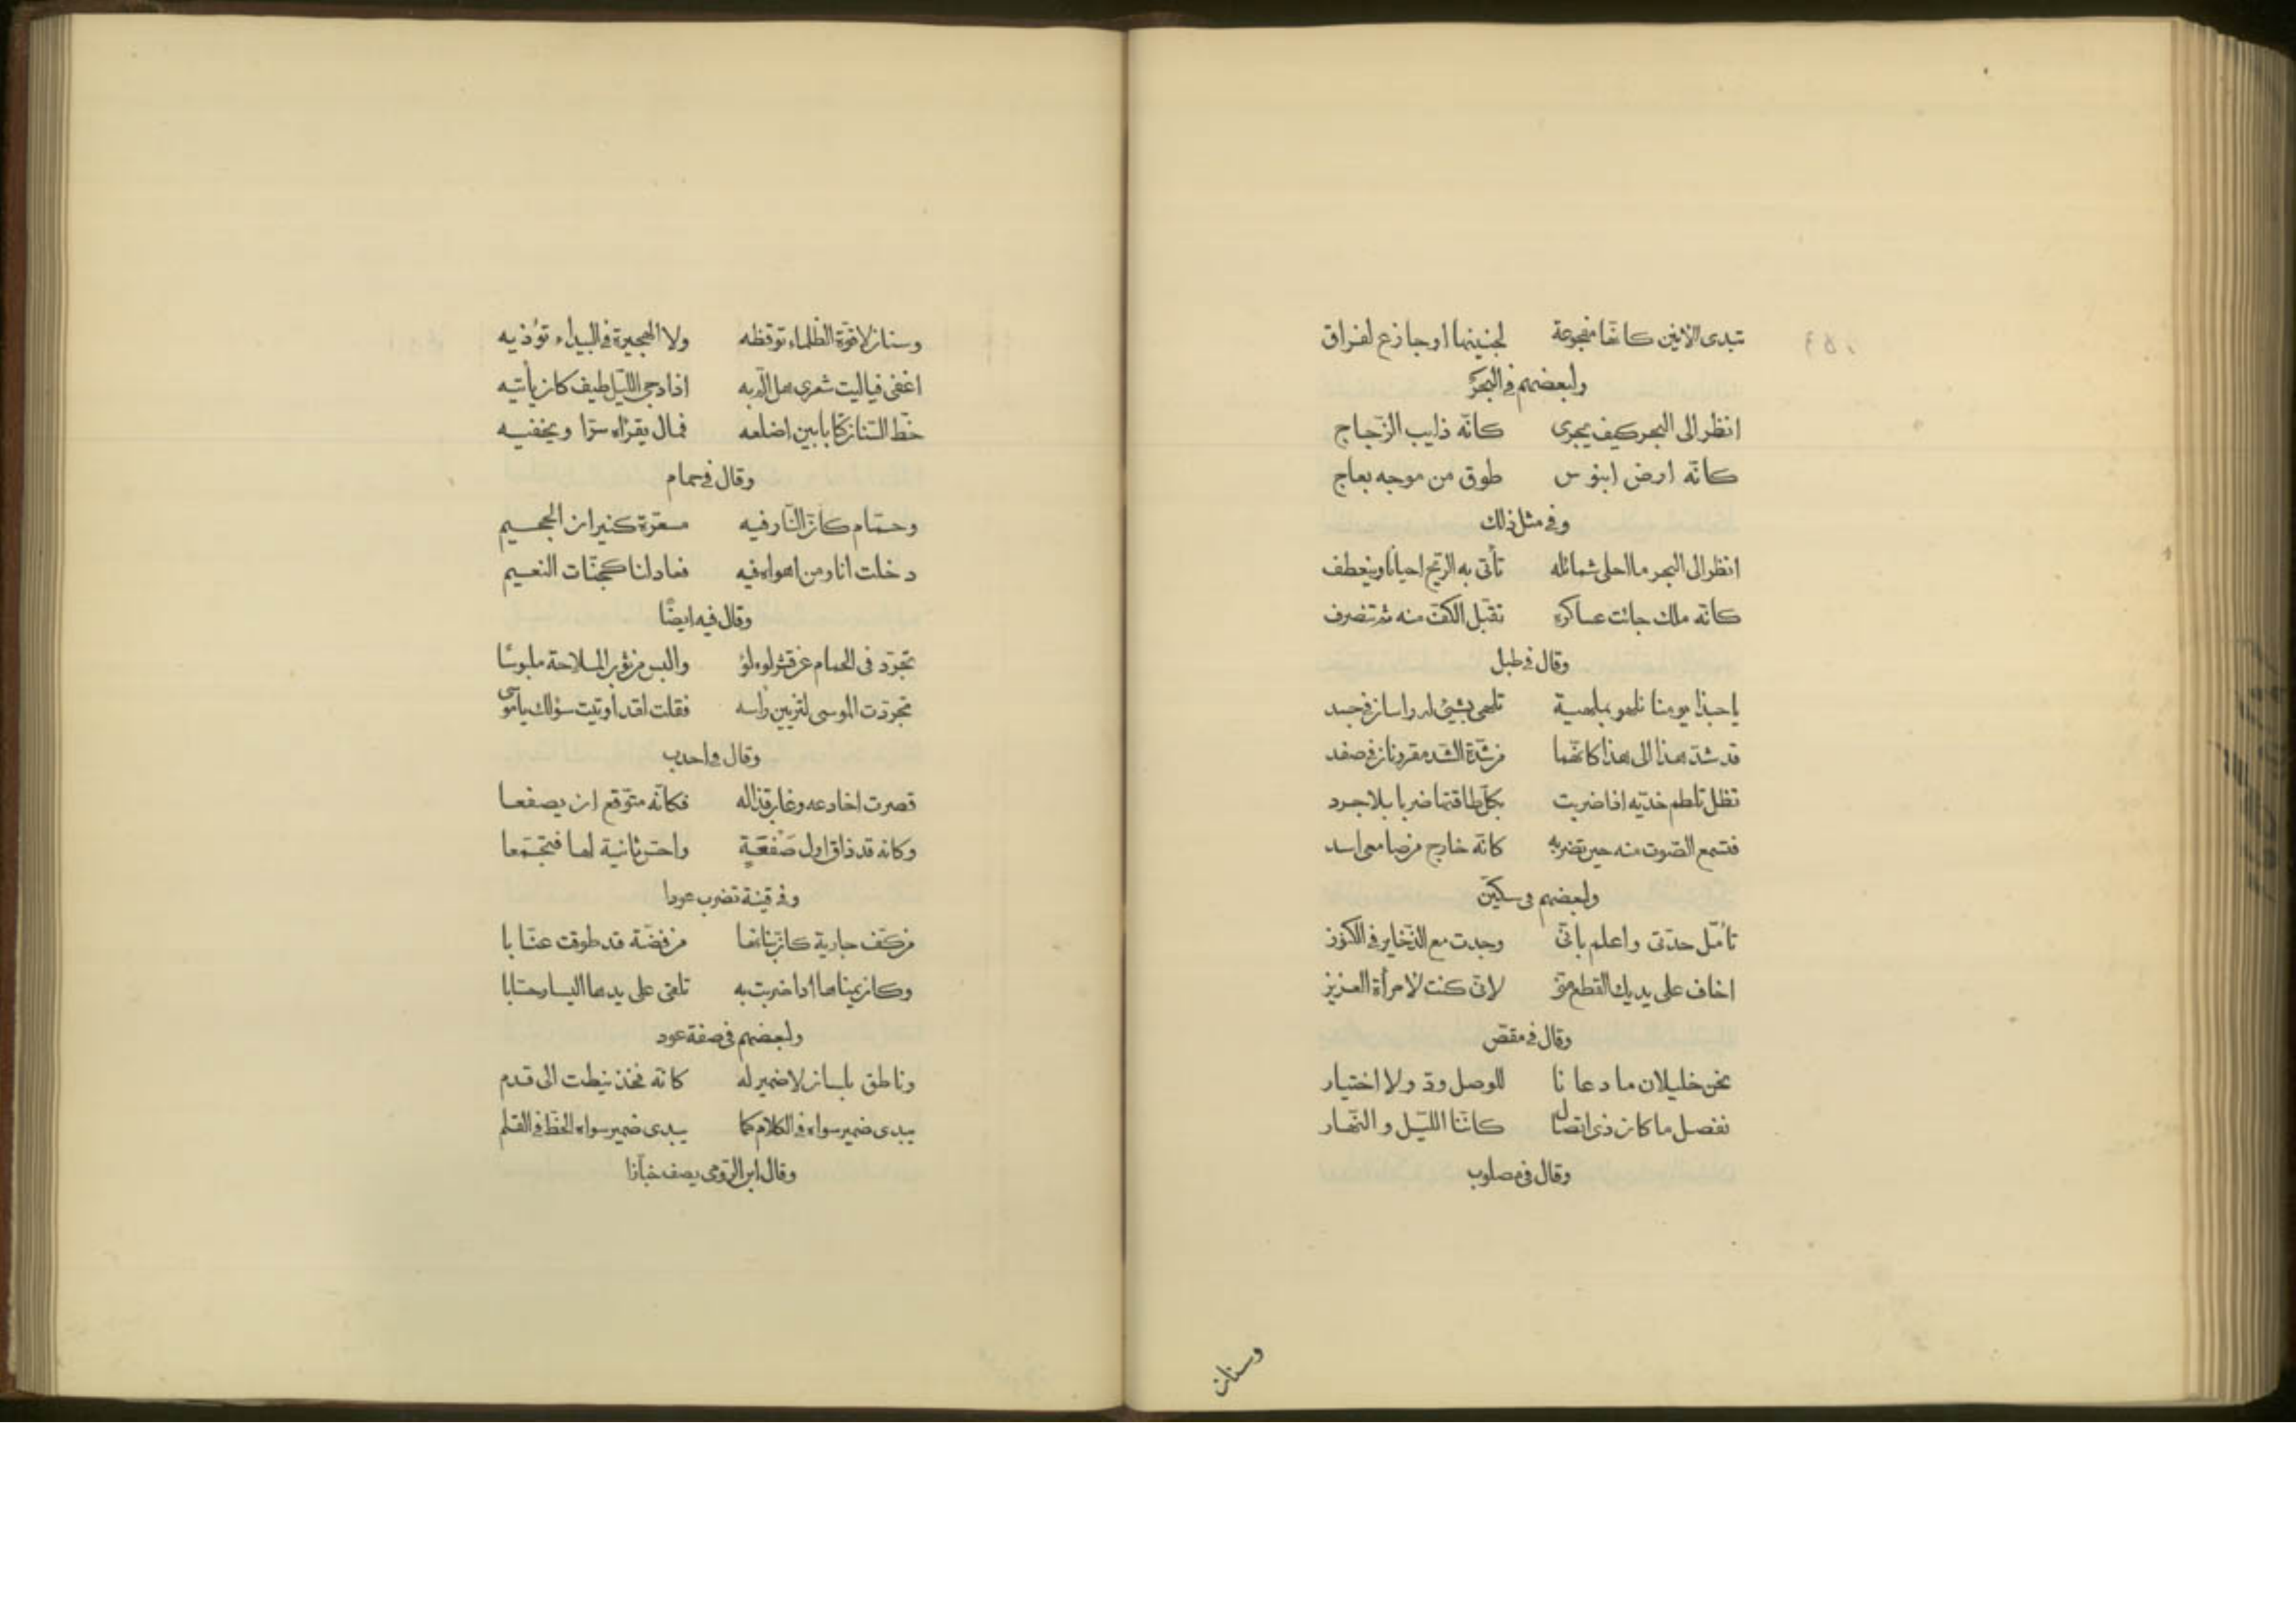 تبدى الانين كانها مفجوعة لجنينها او جازع لفراق
ولبعضهم في البحر
انظر الى البحر كيف يجرى كانّه ذايب الزّجاج
كانّه ارض ابنوس طوق من موجه بعاج
وفي مثل ذلك
انظر الى البحر ما احلى شمائله تأتى به الرّيح احيانًا وينعطف
كانّه ملك جائت عساكره تقبّل الكفّ منه ثم تنصرف
وقال في طبل
يا حبذا يومنا نلهو بملهية تلهى بشيئ له راسان في جسد
قد شدّ هذا الى هذا كانّهما من شدّة الشد مقرونان في صفد
تظل تلطم خدّيه اذا ضربت بكلّ طاقتها ضربا بلا جرد
فتسمع الصّوت منه حين تضربه كانّه خارج من ماضى اسد
ولبعضهم فى سكّين
تامّل حدّتى واعلم بانّى وجدت مع الذّخاير في الكنوز
اخاف على يديك القطع منّى لانّى كنت لامرأة العزيز
وقال في مقصّ
نحن خليلان ما دعانا للوصل ودّ ولا اختيار
نفصل ما كان ذى اتصال كاننّا اللّيل والنّهار
وقال في مصلوب
وسنان
وسنان لا قوّة الظّلماء توقظه ولا الهجيرة في البيداء تؤذيه
اغفى فيا ليت شعرى هل الّم به اذا دجى اللّيل طيف كان يأتيه
خطّ السّنان كتابا بين اضلعه فمال يقرأه سرّا ويخفيه
وقال في حمام
وحمّام كأنّ النّار فيه مسعّرة كنيران الجحيم
دخلت انا ومن اهواه فيه فعاد لنا كجنّات النعيم
وقال فيه ايضًا
تجرّد فى الحمام عن قشر لولو والبس من ثوب الملاحة ملبوسًا
تجرّدت الموسى لتزيين رأسه فقلت لقد اوتيت سؤلك يا موسى
وقال في احدب
قصرت اخادعه وغار قذاله فكانّه متوّقع ان يصفعا
وكانه قد ذاق اول صفعة واحسّ ثانية لها فتجمّعا
وفي قينة تضرب عودا
من كفّ جارية كانّ بنانها من فضّة قد طوقت عنّابا
وكان يمناها اذا ضربت به تلقى على يدها اليسار حسابا
ولبعضهم في صفة عود
وناطق بلسان لا ضمير له كانّه فخذ نيطت الى قدم
يبدى ضمير سواه في الكلام كما يبدى ضمير سواه الخطّ في القلم
وقال ابن الرّومى يصف خبّازا